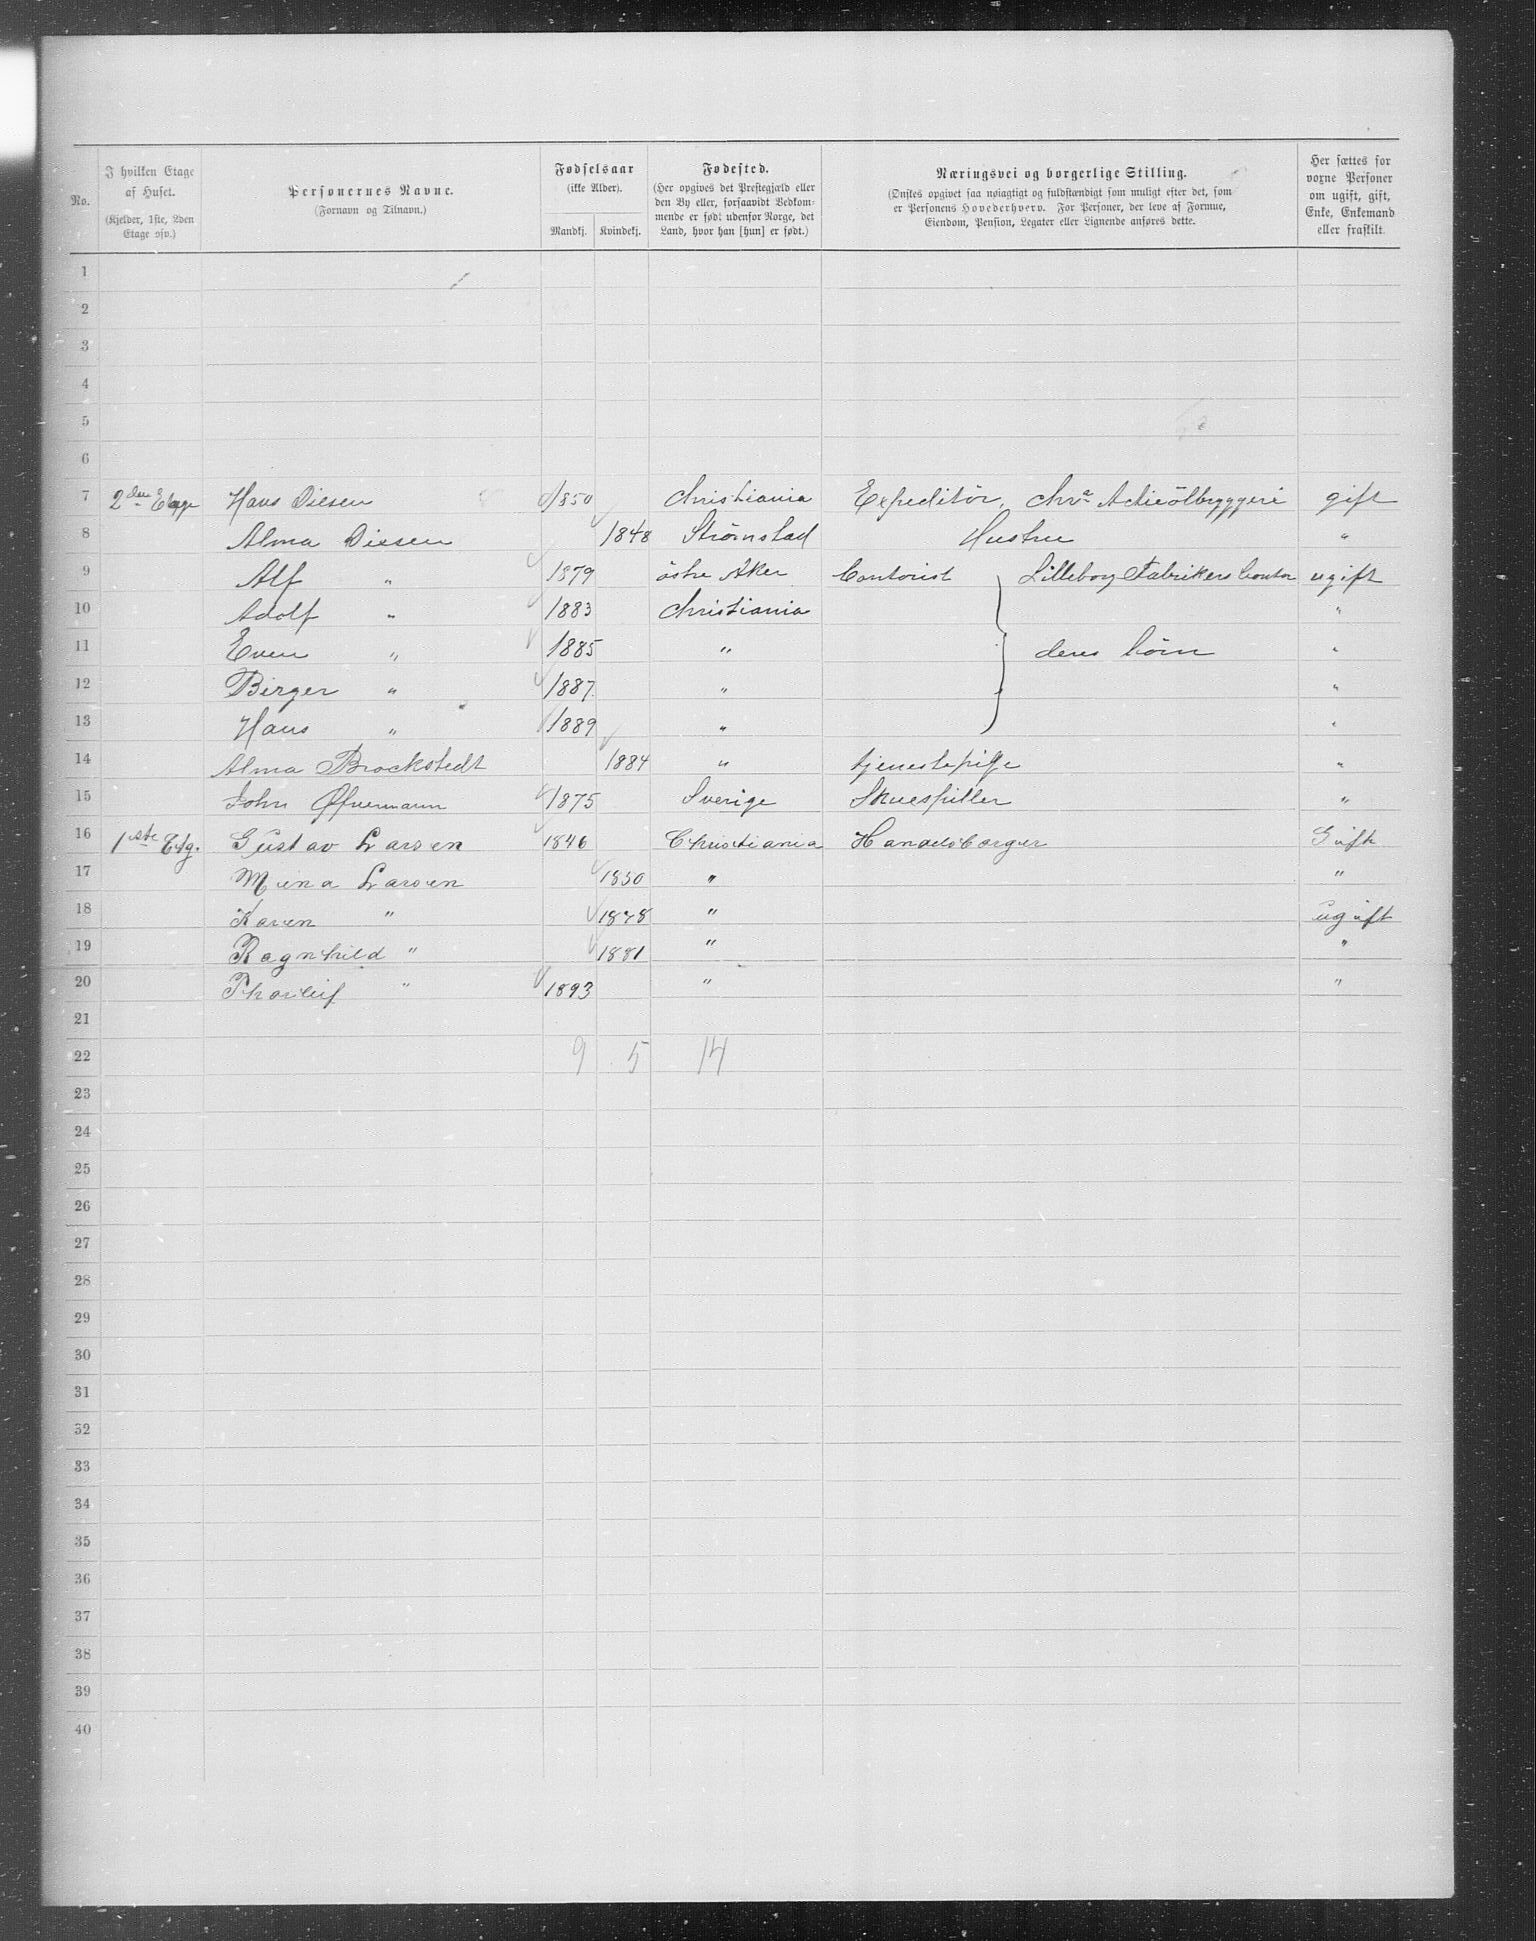 No.
I hvilken Etage af Huset.
(Kjelder, 1ste, 2den Etage osv.)
Personernes Navne.
(Fornavn og Tilnavn.)
Fødselsaar
(ikke Alder).
Mandkj. Kvindekj.
Fødested.
(Her opgives det Prestegjæld eller den By eller, forsaavidt Vedkommende er født udenfor Norge, det Land, hvor han [hun] er født.)
Næringsvei og borgerlige Stilling.
(Ønskes opgivet saa nøiagtigt og fuldstændigt som muligt efter det, som er Personens Hovederhverv. For Personer, der leve af Formue, Eiendom, Pension, Legater eller Lignende anføres dette.
Her sættes for voxne Personer om ugift, gift, Enke, Enkemand eller fraskilt.
1
2
3
4
5
6
7 2den Etage Hans Diesen 1850 Christiania Expeditör, Chra Actieölbryggeri gift
8 Alma Diesen 1848 Strømstad Hustru "
9 Alf " 1879 östre Aker Contorist Lilleborg Fabrikers Contor ugift
10 Adolf " 1883 Christiania "
11 Even " 1885 " deres börn "
12 Birger " 1887 " "
13 Hans " 1889 " "
14 Alma Brockstedt 1884 " tjenestepige "
15 John Øfvermann 1875 Sverige Skuespiller "
16 1ste Etg. Gustav Larsen 1846 Christiania Handelsborger Gift
17 Mina Larsen 1850 " "
18 Karen " 1878 " ugift
19 Ragnhild " 1881 " "
20 Thorleif " 1893 " "
21
22 9 5 14
23
24
25
26
27
28
29
30
31
32
33
34
35
36
37
38
39
40